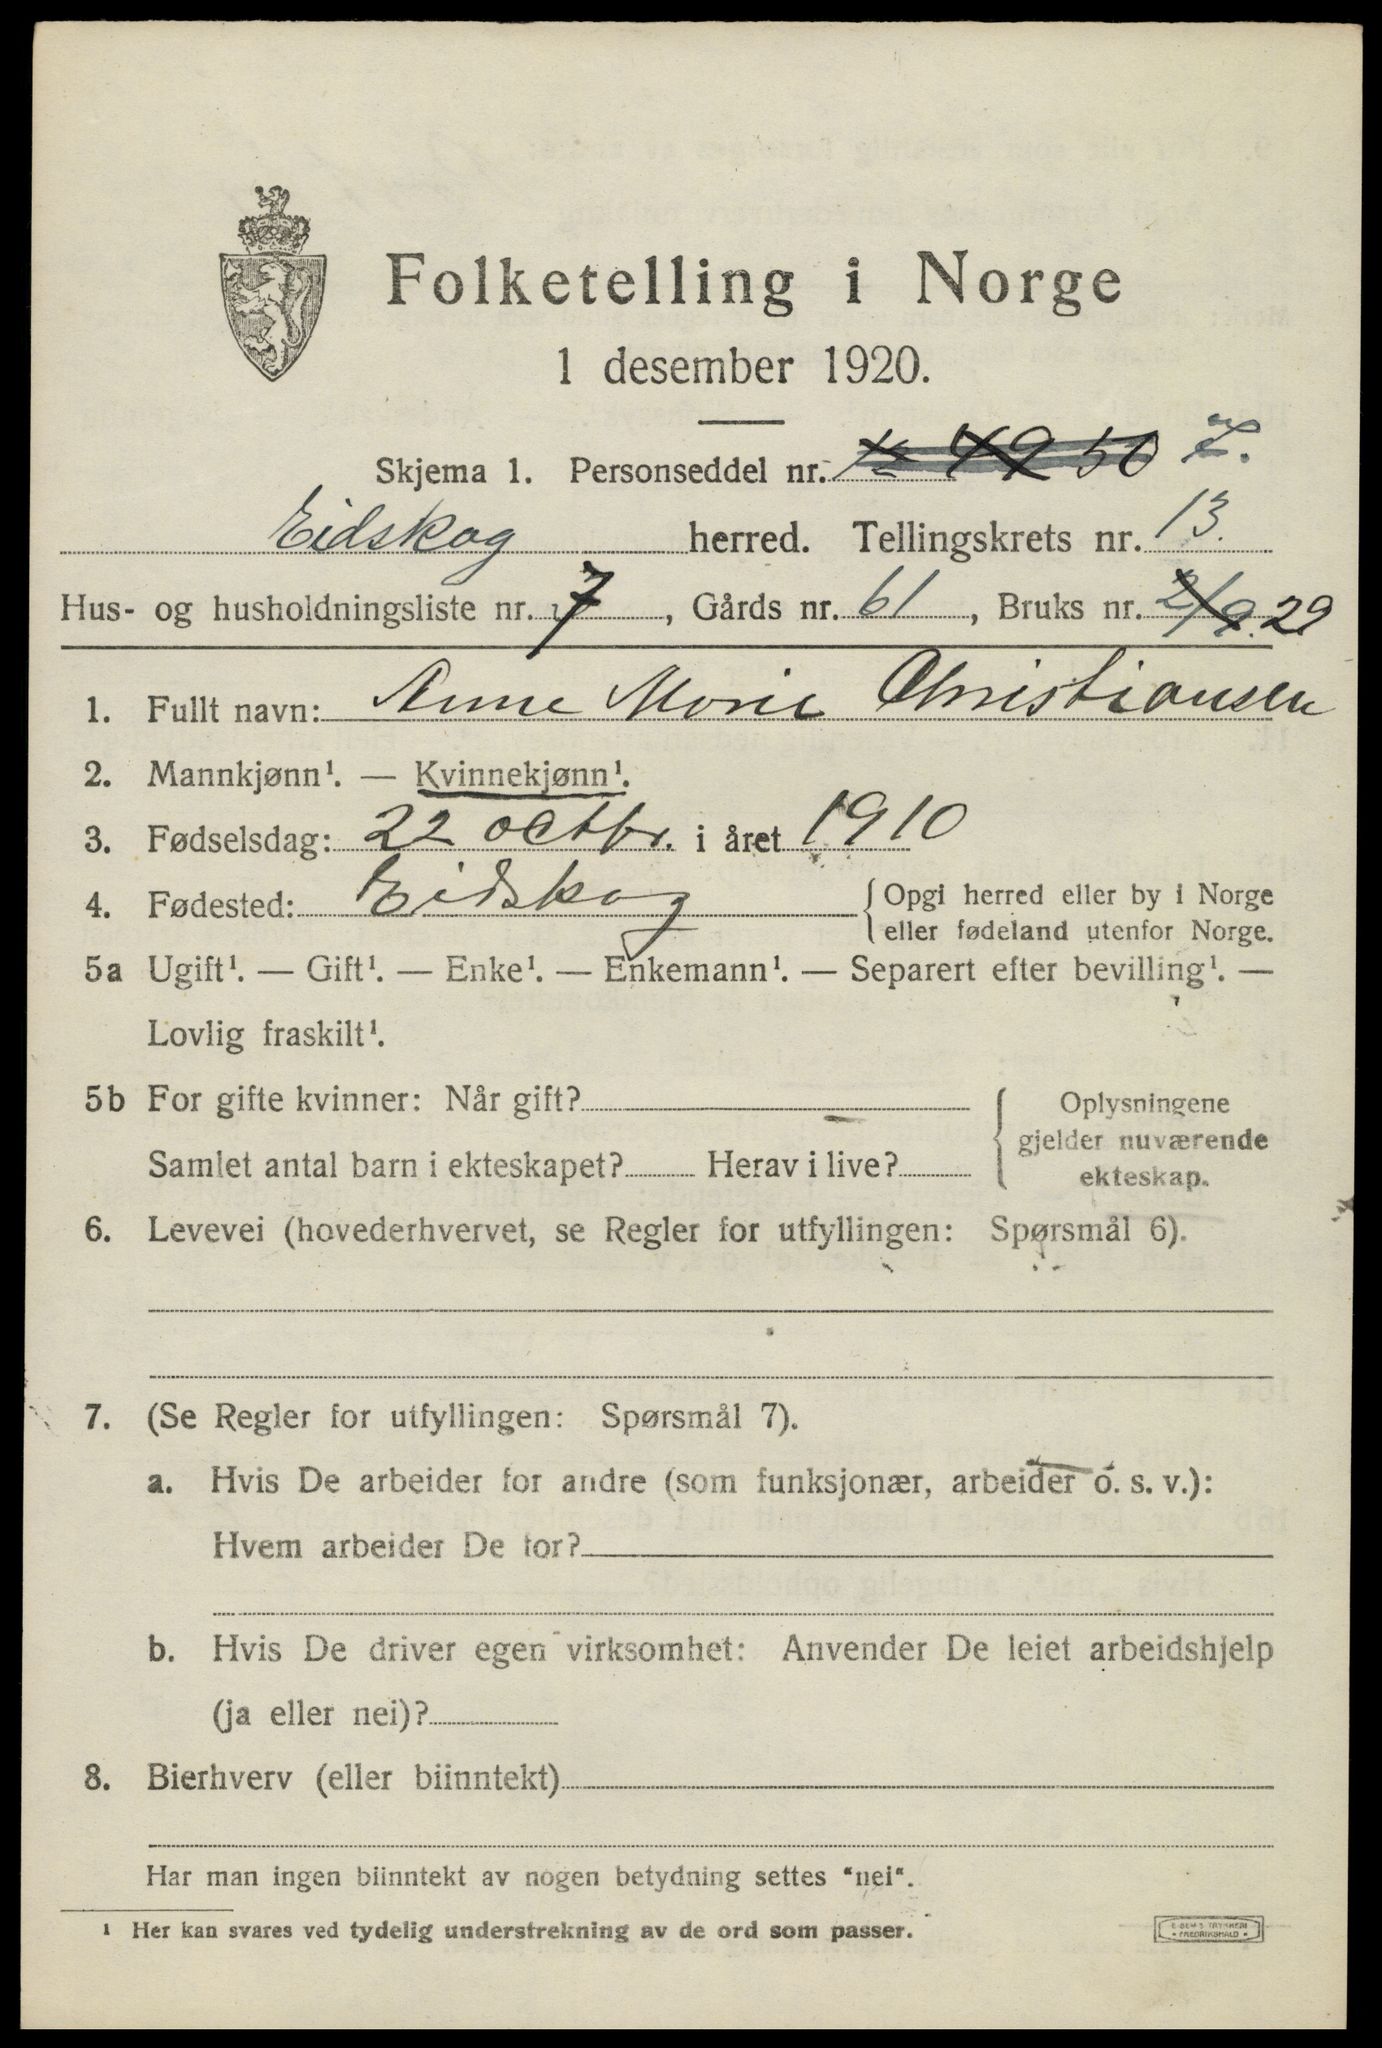 Folketelling i Norge
1 desember 1920.
Skjema 1. Personseddel nr. 49 50 7.
Eidskog herred. Tellingskrets nr. 13.
Hus- og husholdningsliste nr. 7, Gårds nr. 61, Bruks nr. 2/9. 29
1. Fullt navn: Anne Marie Christiansen
2. Mannkjønn¹. — Kvinnekjønn¹.
3. Fødselsdag: 22 octbr. i året 1910
4. Fødested: Eidskog {Opgi herred eller by i Norge
eller fødeland utenfor Norge.
5a Ugift¹. — Gift¹. — Enke¹. — Enkemann¹. — Separert efter bevilling¹. —
Lovlig fraskilt¹.
5b For gifte kvinner: Når gift? { Oplysningene
gjelder nuværende
Samlet antal barn i ekteskapet? Herav i live?
ekteskap.
6. Levevei (hovederhvervet, se Regler for utfyllingen: Spørsmål 6).
7. (Se Regler for utfyllingen: Spørsmål 7).
a. Hvis De arbeider for andre (som funksjonær, arbeider o. s. v.):
Hvem arbeider De for?
b. Hvis De driver egen virksomhet: Anvender De leiet arbeidshjelp
(ja eller nei)?
8. Bierhverv (eller biinntekt)
Har man ingen biinntekt av nogen betydning settes “nei“.
¹ Her kan svares ved tydelig understrekning av de ord som passer.
FREDRIKSHALD